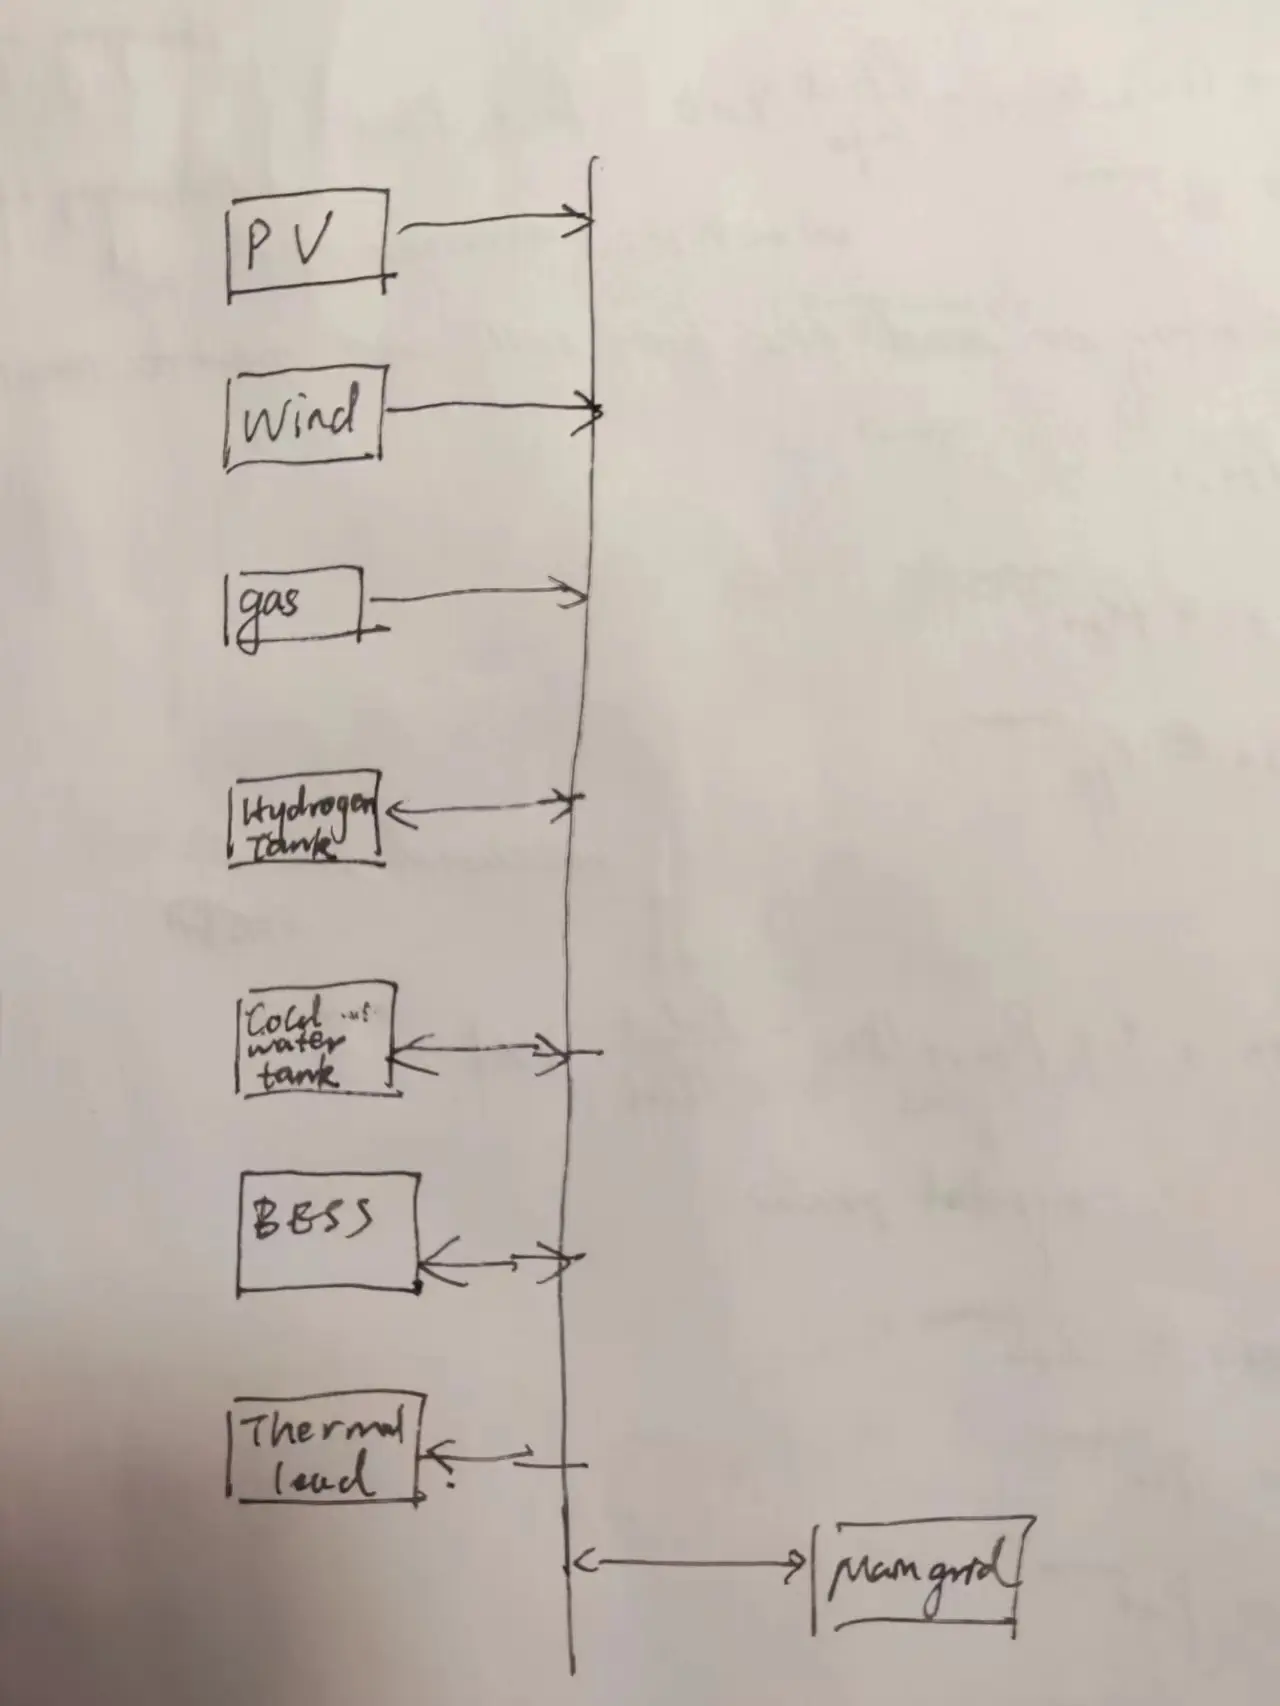 PV
Wind
gas
Hydrogen
Tank
Cold
water
tank
BESS
Thermal
load
Main grid